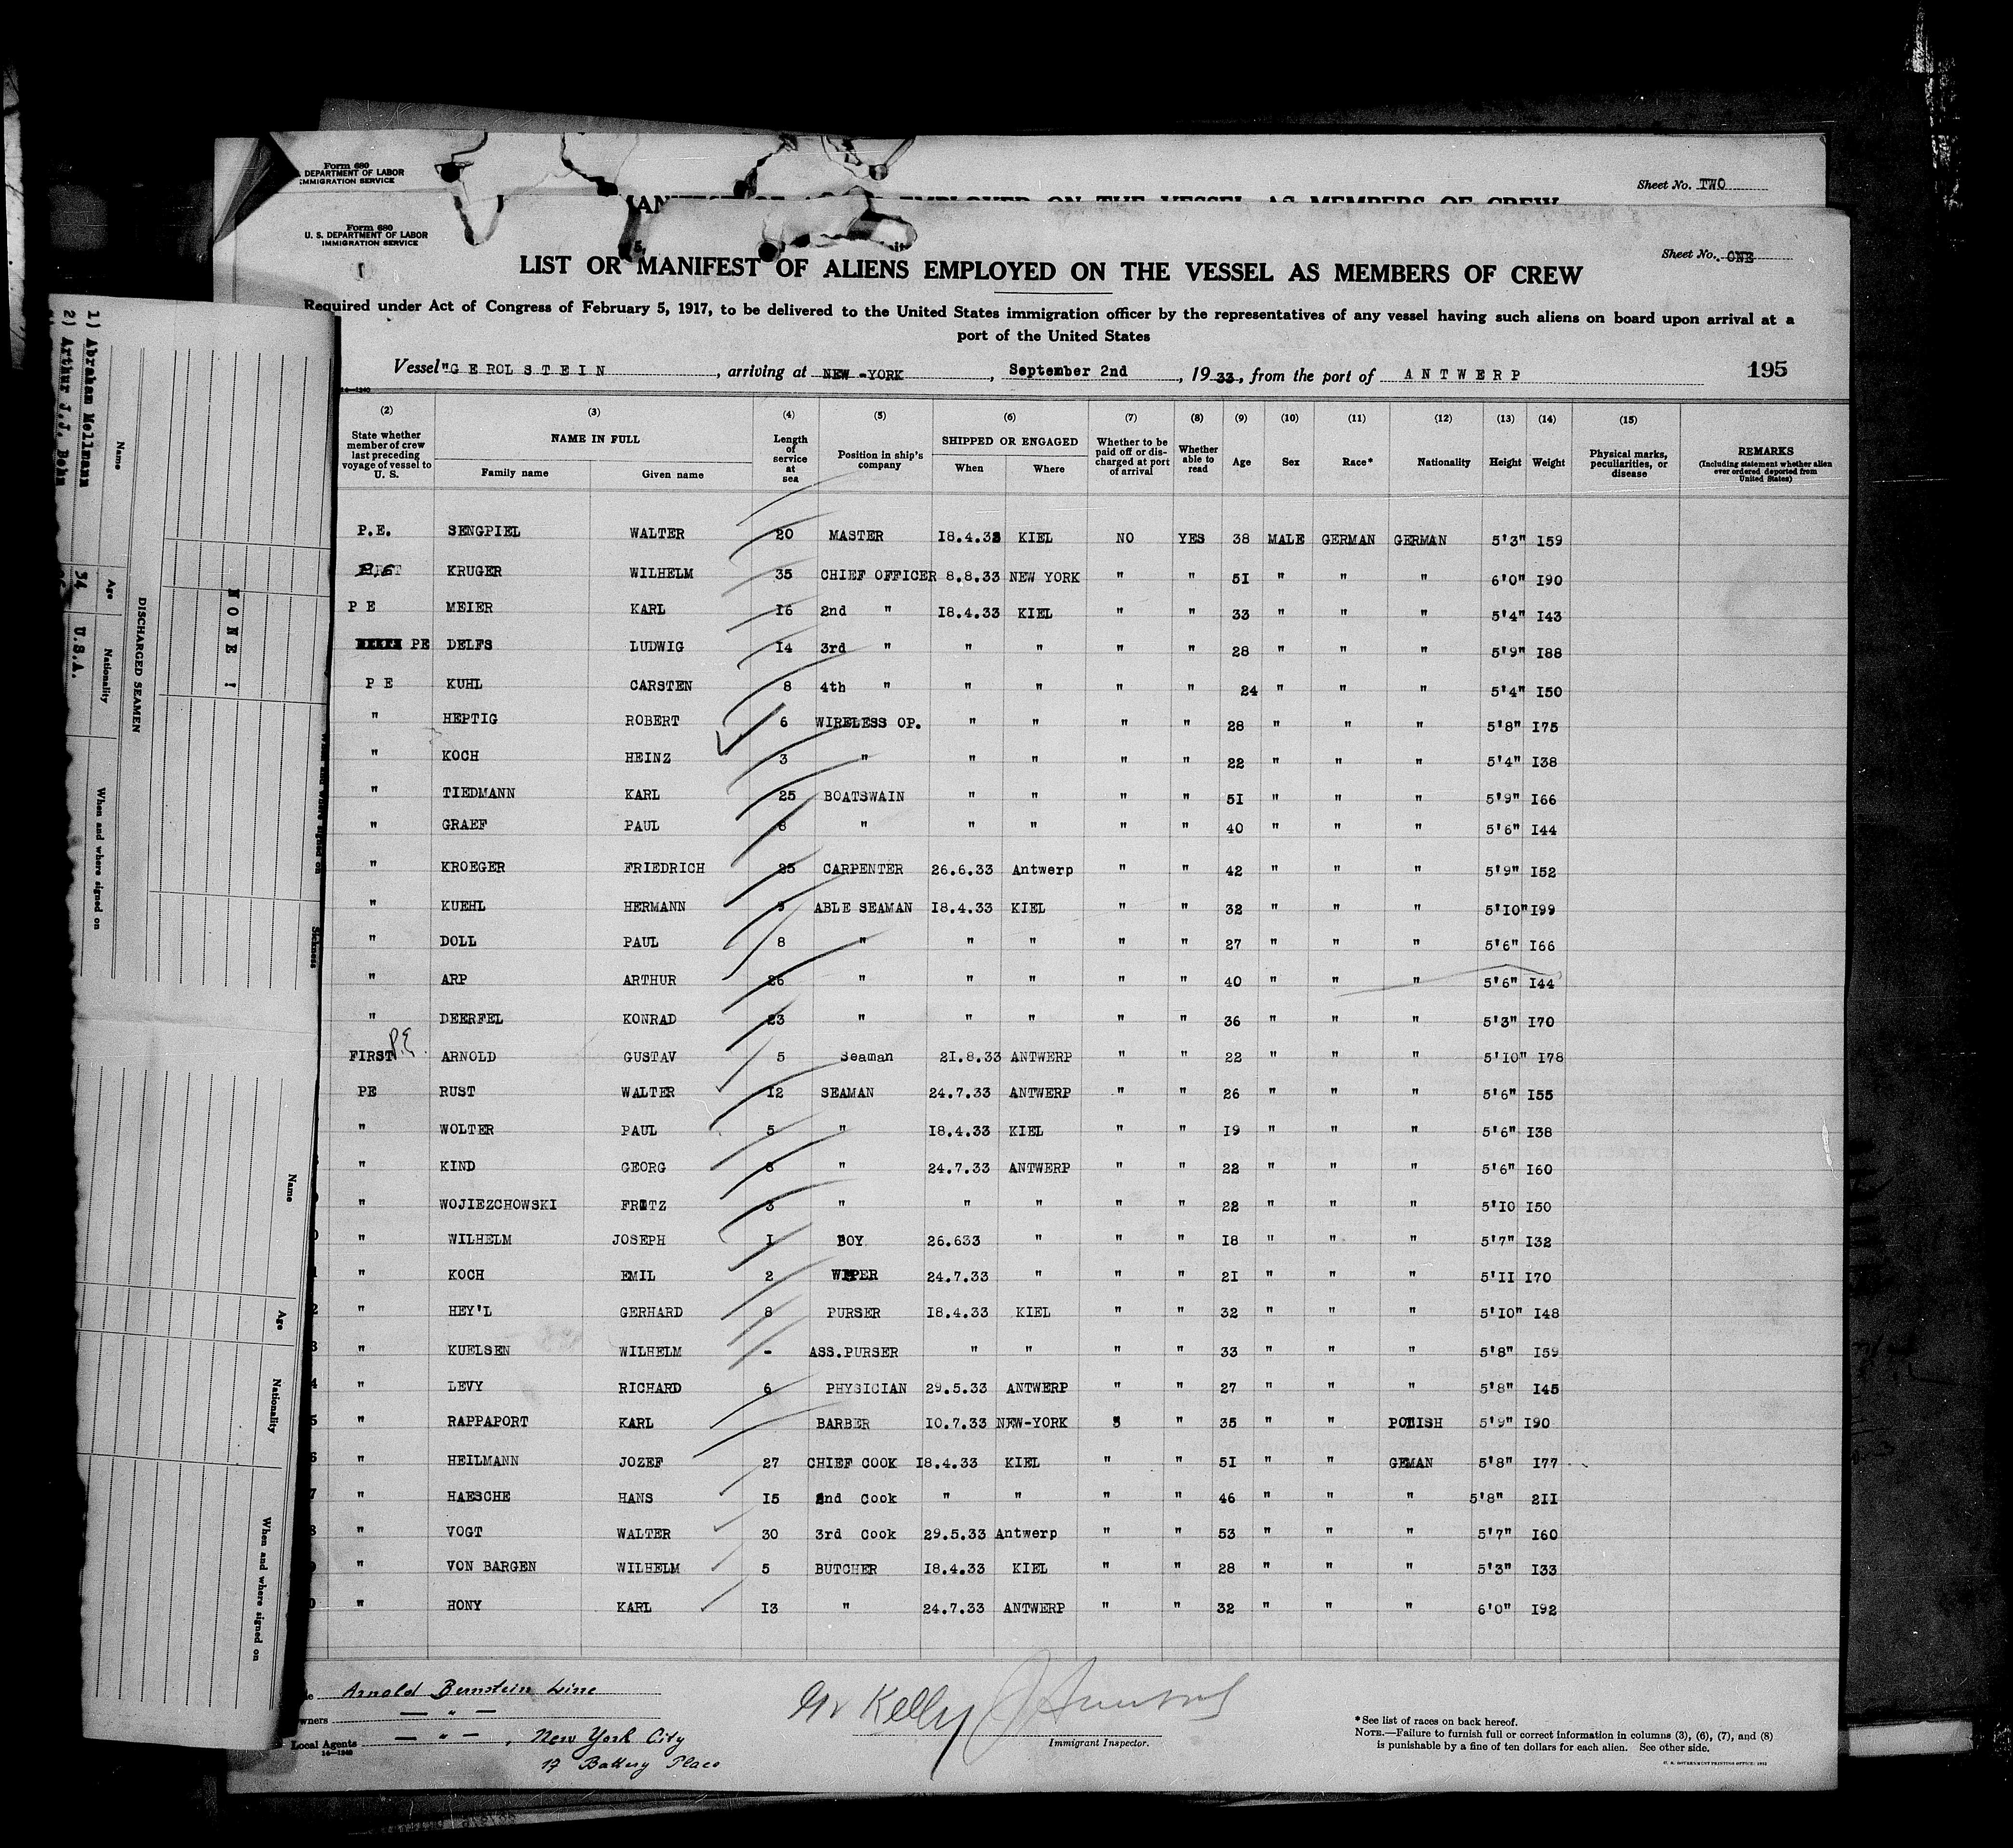 Form 680
. DEPARTMENT OF LABOR
IMMIGRATION SERVICE
Sheet No. TWO
EMPLOYED ON THE VESSEL AS MEMBERS OF CREW
Form 680
U. S. DEPARTMENT OF LABOR
IMMIGRATION SERVICE
Sheet No. ONE
LIST OR MANIFEST OF ALIENS EMPLOYED ON THE VESSEL AS MEMBERS OF CREW
Required under Act of Congress of February 5, 1917, to be delivered to the United States immigration officer by the representatives of any vessel having such aliens on board upon arrival at a
port of the United States
Vessel "GEROLSTEIN, arriving at NEW-YORK, September 2nd, 1933, from the port of ANTWERP 195
(2) (3) (4) (5) (6) (7) (8) (9) (10) (11) (12) (13) (14) (15)
State whether member of crew last preceding voyage of vessel to U. S. NAME IN FULL Family name Given name Length of service at sea Position in ship's company SHIPPED OR ENGAGED When Where Whether to be paid off or discharged at port of arrival Whether able to read Age Sex Race* Nationality Height Weight Physical marks, peculiarities, or disease REMARKS (Including statement whether alien ever ordered deported from United States)
P.E. SENGPIEL WALTER 20 MASTER 18.4.33 KIEL NO YES 38 MALE GERMAN GERMAN 5'3" I59
P.E KRUGER WILHELM 35 CHIEF OFFICER 8.8.33 NEW YORK " " 5I " " " 6'0" I90
P E MEIER KARL I6 2nd " I8.4.33 KIEL " " 33 " " " 5'4" I43
PE DELFS LUDWIG I4 3rd " " " " " 28 " " " 5'9" I88
P E KUHL CARSTEN 8 4th " " " " " 24 " " " 5'4" I50
" HEPTIG ROBERT 6 WIRELESS OP. " " " " 28 " " " 5'8" I75
" KOCH HEINZ 3 " " " " " 22 " " " 5'4" I38
" TIEDMANN KARL 25 BOATSWAIN " " " " 5I " " " 5'9" I66
" GRAEF PAUL 8 " " " " " 40 " " " 5'6" I44
" KROEGER FRIEDRICH 25 CARPENTER 26.6.33 Antwerp " " 42 " " " 5'9" I52
" KUEHL HERMANN 9 ABLE SEAMAN I8.4.33 KIEL " " 32 " " " 5'I0" I99
" DOLL PAUL 8 " " " " " 27 " " " 5'6" I66
" ARP ARTHUR 26 " " " " " 40 " " " 5'6" I44
" DEERFEL KONRAD 23 " " " " " 36 " " " 5'3" I70
FIRST P.E. ARNOLD GUSTAV 5 Seaman 2I.8.33 ANTWERP " " 22 " " " 5'I0" I78
PE RUST WALTER I2 SEAMAN 24.7.33 ANTWERP " " 26 " " " 5'6" I55
" WOLTER PAUL 5 " I8.4.33 KIEL " " I9 " " " 5'6" I38
" KIND GEORG 8 " 24.7.33 ANTWERP " " 22 " " " 5'6" I60
" WOJIEZCHOWSKI FRITZ 3 " " " " " 22 " " " 5'I0 I50
" WILHELM JOSEPH I BOY 26.633 " " " I8 " " " 5'7" I32
" KOCH EMIL 2 WIPER 24.7.33 " " " 2I " " " 5'II I70
" HEY'L GERHARD 8 PURSER I8.4.33 KIEL " " 32 " " " 5'I0" I48
" KUELSEN WILHELM - ASS.PURSER " " " " 33 " " " 5'8" I59
" LEVY RICHARD 6 PHYSICIAN 29.5.33 ANTWERP " " 27 " " " 5'8" I45
" RAPPAPORT KARL BARBER I0.7.33 NEW-YORK " " 35 " " POLISH 5'9" I90
" HEILMANN JOZEF 27 CHIEF COOK I8.4.33 KIEL " " 5I " " GEMAN 5'8" I77
" HAESCHE HANS I5 2nd Cook " " " " 46 " " " 5'8" 2II
" VOGT WALTER 30 3rd Cook 29.5.33 Antwerp " " 53 " " " 5'7" I60
" VON BARGEN WILHELM 5 BUTCHER I8.4.33 KIEL " " 28 " " " 5'3" I33
" HONY KARL I3 " 24.7.33 ANTWERP " " 32 " " " 6'0" I92
Arnold Bernstein Line
wners — " —
Local Agents — " —, New York City
17 Battery Place
14—1240
Kelly
Immigrant Inspector.
*See list of races on back hereof.
NOTE.—Failure to furnish full or correct information in columns (3), (6), (7), and (8)
is punishable by a fine of ten dollars for each alien. See other side.
U. S. GOVERNMENT PRINTING OFFICE: 1932
1) Abraham Mellmann 34 U.S.A.
2) Arthur J.J. Behn
Name Age Nationality When and where signed on
DISCHARGED SEAMEN
NONE !
Name Age Nationality When and where signed on